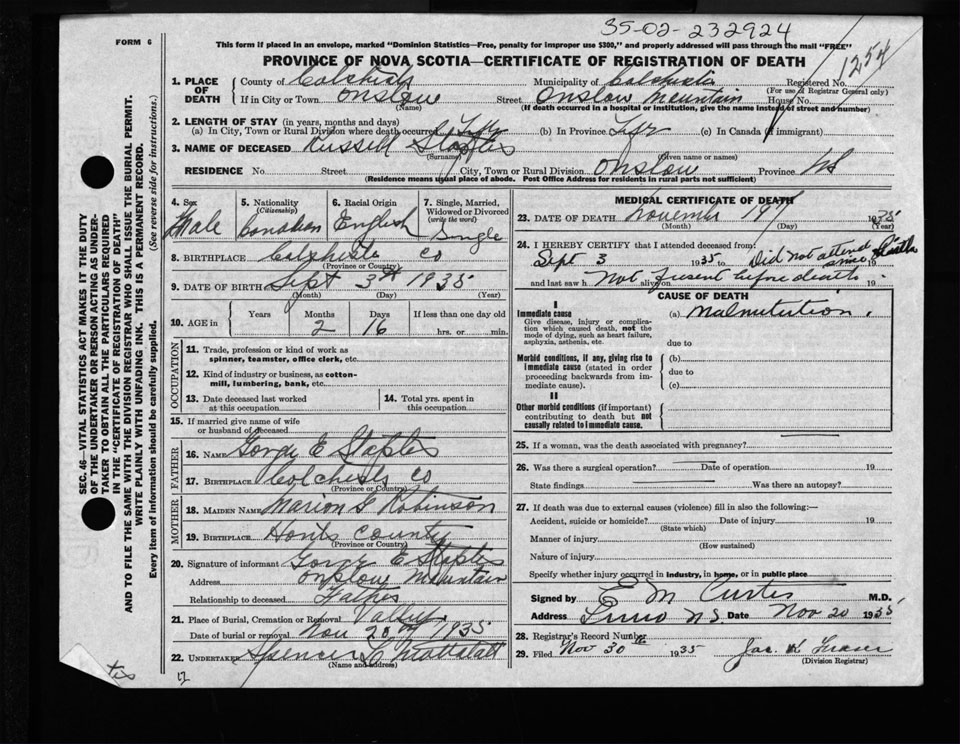 35-02-232924
FORM 6
This form if placed in an envelope, marked "Dominion Statistics—Free, penalty for improper use $300," and properly addressed will pass through the mail "FREE"
PROVINCE OF NOVA SCOTIA—CERTIFICATE OF REGISTRATION OF DEATH
1254
1. PLACE OF DEATH County of Colchester Municipality of Colchester Registered No.
(For use of Registrar General only)
If in City or Town Onslow Street Onslow Mountain House No.
(Name) (If death occurred in a hospital or institution, give the name instead of street and number)
2. LENGTH OF STAY (in years, months and days)
(a) In City, Town or Rural Division where death occurred Life (b) In Province Life (c) In Canada (if immigrant)
3. NAME OF DECEASED Russell Staples
(Surname) (Given name or names)
RESIDENCE No. Street City, Town or Rural Division Onslow Province NS
(Residence means usual place of abode. Post Office Address for residents in rural parts not sufficient)
4. Sex Male
5. Nationality (Citizenship) Canadian
6. Racial Origin English
7. Single, Married, Widowed or Divorced (write the word) Single
8. BIRTHPLACE Colchester Co
(Province or Country)
9. DATE OF BIRTH Sept 3rd 1935
(Month) (Day) (Year)
10. AGE in Years Months 2 Days 16 If less than one day old hrs. or min.
OCCUPATION
11. Trade, profession or kind of work as spinner, teamster, office clerk, etc.
12. Kind of industry or business, as cotton-mill, lumbering, bank, etc.
13. Date deceased last worked at this occupation
14. Total yrs. spent in this occupation
15. If married give name of wife or husband of deceased
FATHER
16. NAME George E Staples
17. BIRTHPLACE Colchester Co
(Province or Country)
MOTHER
18. MAIDEN NAME Marion G Robinson
19. BIRTHPLACE Hants County
(Province or Country)
20. Signature of informant George E Staples
Address Onslow Mountain
Relationship to deceased Father
21. Place of Burial, Cremation or Removal Valley
Date of burial or removal Nov 20 1935
22. UNDERTAKER Spencer
(Name and address)
MEDICAL CERTIFICATE OF DEATH
23. DATE OF DEATH November 19 1935
(Month) (Day) (Year)
24. I HEREBY CERTIFY that I attended deceased from:
Sept 3 1935 to Did not attend since 19
and last saw h alive on Not present before death 19
CAUSE OF DEATH
I
Immediate cause
Give disease, injury or complication which caused death, not the mode of dying, such as heart failure, asphyxia, asthenia, etc.
(a) Malnutrition.
due to
Morbid conditions, if any, giving rise to immediate cause (stated in order proceeding backwards from immediate cause).
(b)
due to
(c)
II
Other morbid conditions (if important) contributing to death but not causally related to immediate cause.
25. If a woman, was the death associated with pregnancy?
26. Was there a surgical operation? Date of operation 19
State findings Was there an autopsy?
27. If death was due to external causes (violence) fill in also the following:—
Accident, suicide or homicide? Date of injury 19
(State which)
Manner of injury
(How sustained)
Nature of injury
Specify whether injury occurred in industry, in home, or in public place
Signed by E M Curtis M.D.
Address Truro N.S. Date Nov 20 1935
28. Registrar's Record Number
29. Filed Nov 30th 1935 Jas. K Fraser
(Division Registrar)
SEC. 46—VITAL STATISTICS ACT MAKES IT THE DUTY
OF THE UNDERTAKER OR PERSON ACTING AS UNDER-
TAKER TO OBTAIN ALL THE PARTICULARS REQUIRED
IN THE "CERTIFICATE OF REGISTRATION OF DEATH"
AND TO FILE THE SAME WITH THE DIVISION REGISTRAR WHO SHALL ISSUE THE BURIAL PERMIT.
WRITE PLAINLY WITH UNFADING INK. THIS IS A PERMANENT RECORD.
Every item of information should be carefully supplied. (See reverse side for instructions.)